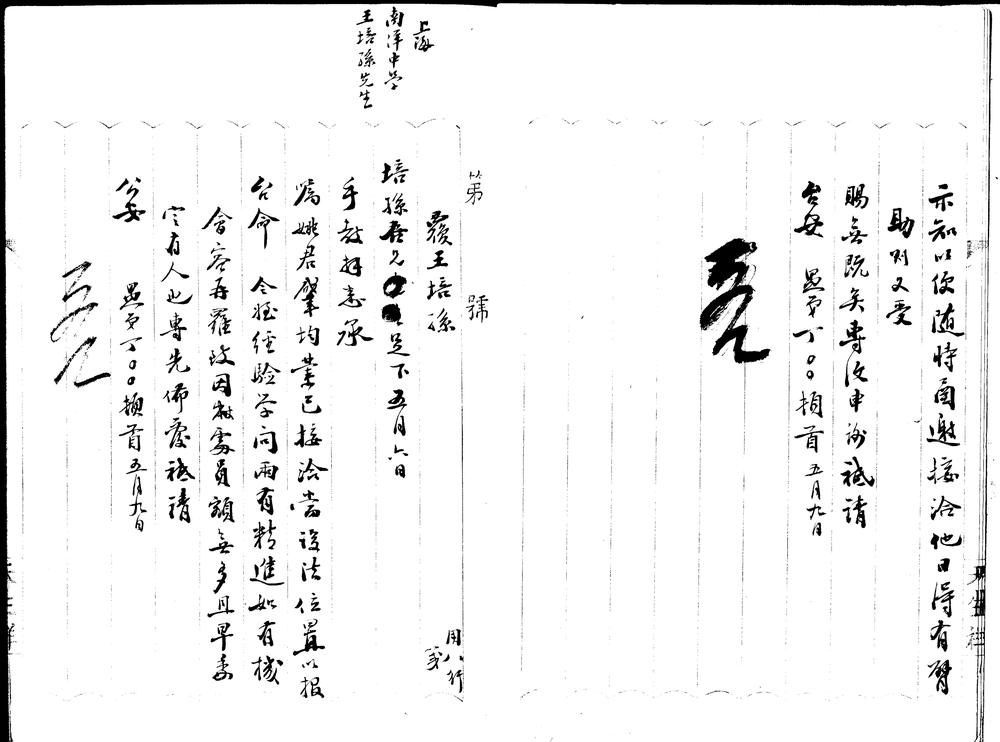 示知以便随時函邀接洽他日得有臂
助則又受
賜無既矣專此申謝祗請
台安 愚弟丁○○頓首五月九日
第 號
上海
南洋中学
王培孫先生
覆王培孫
培孫吾兄足下五月六日
手教拜悉承
囑姚君肇均業已接洽當設法位置以报
台命 令姪经驗学问兩有精進如有機
會容再羅致因敝處員額無多且早委
定有人也專先佈覆祗請
公安 愚弟丁○○頓首五月九日
用八行